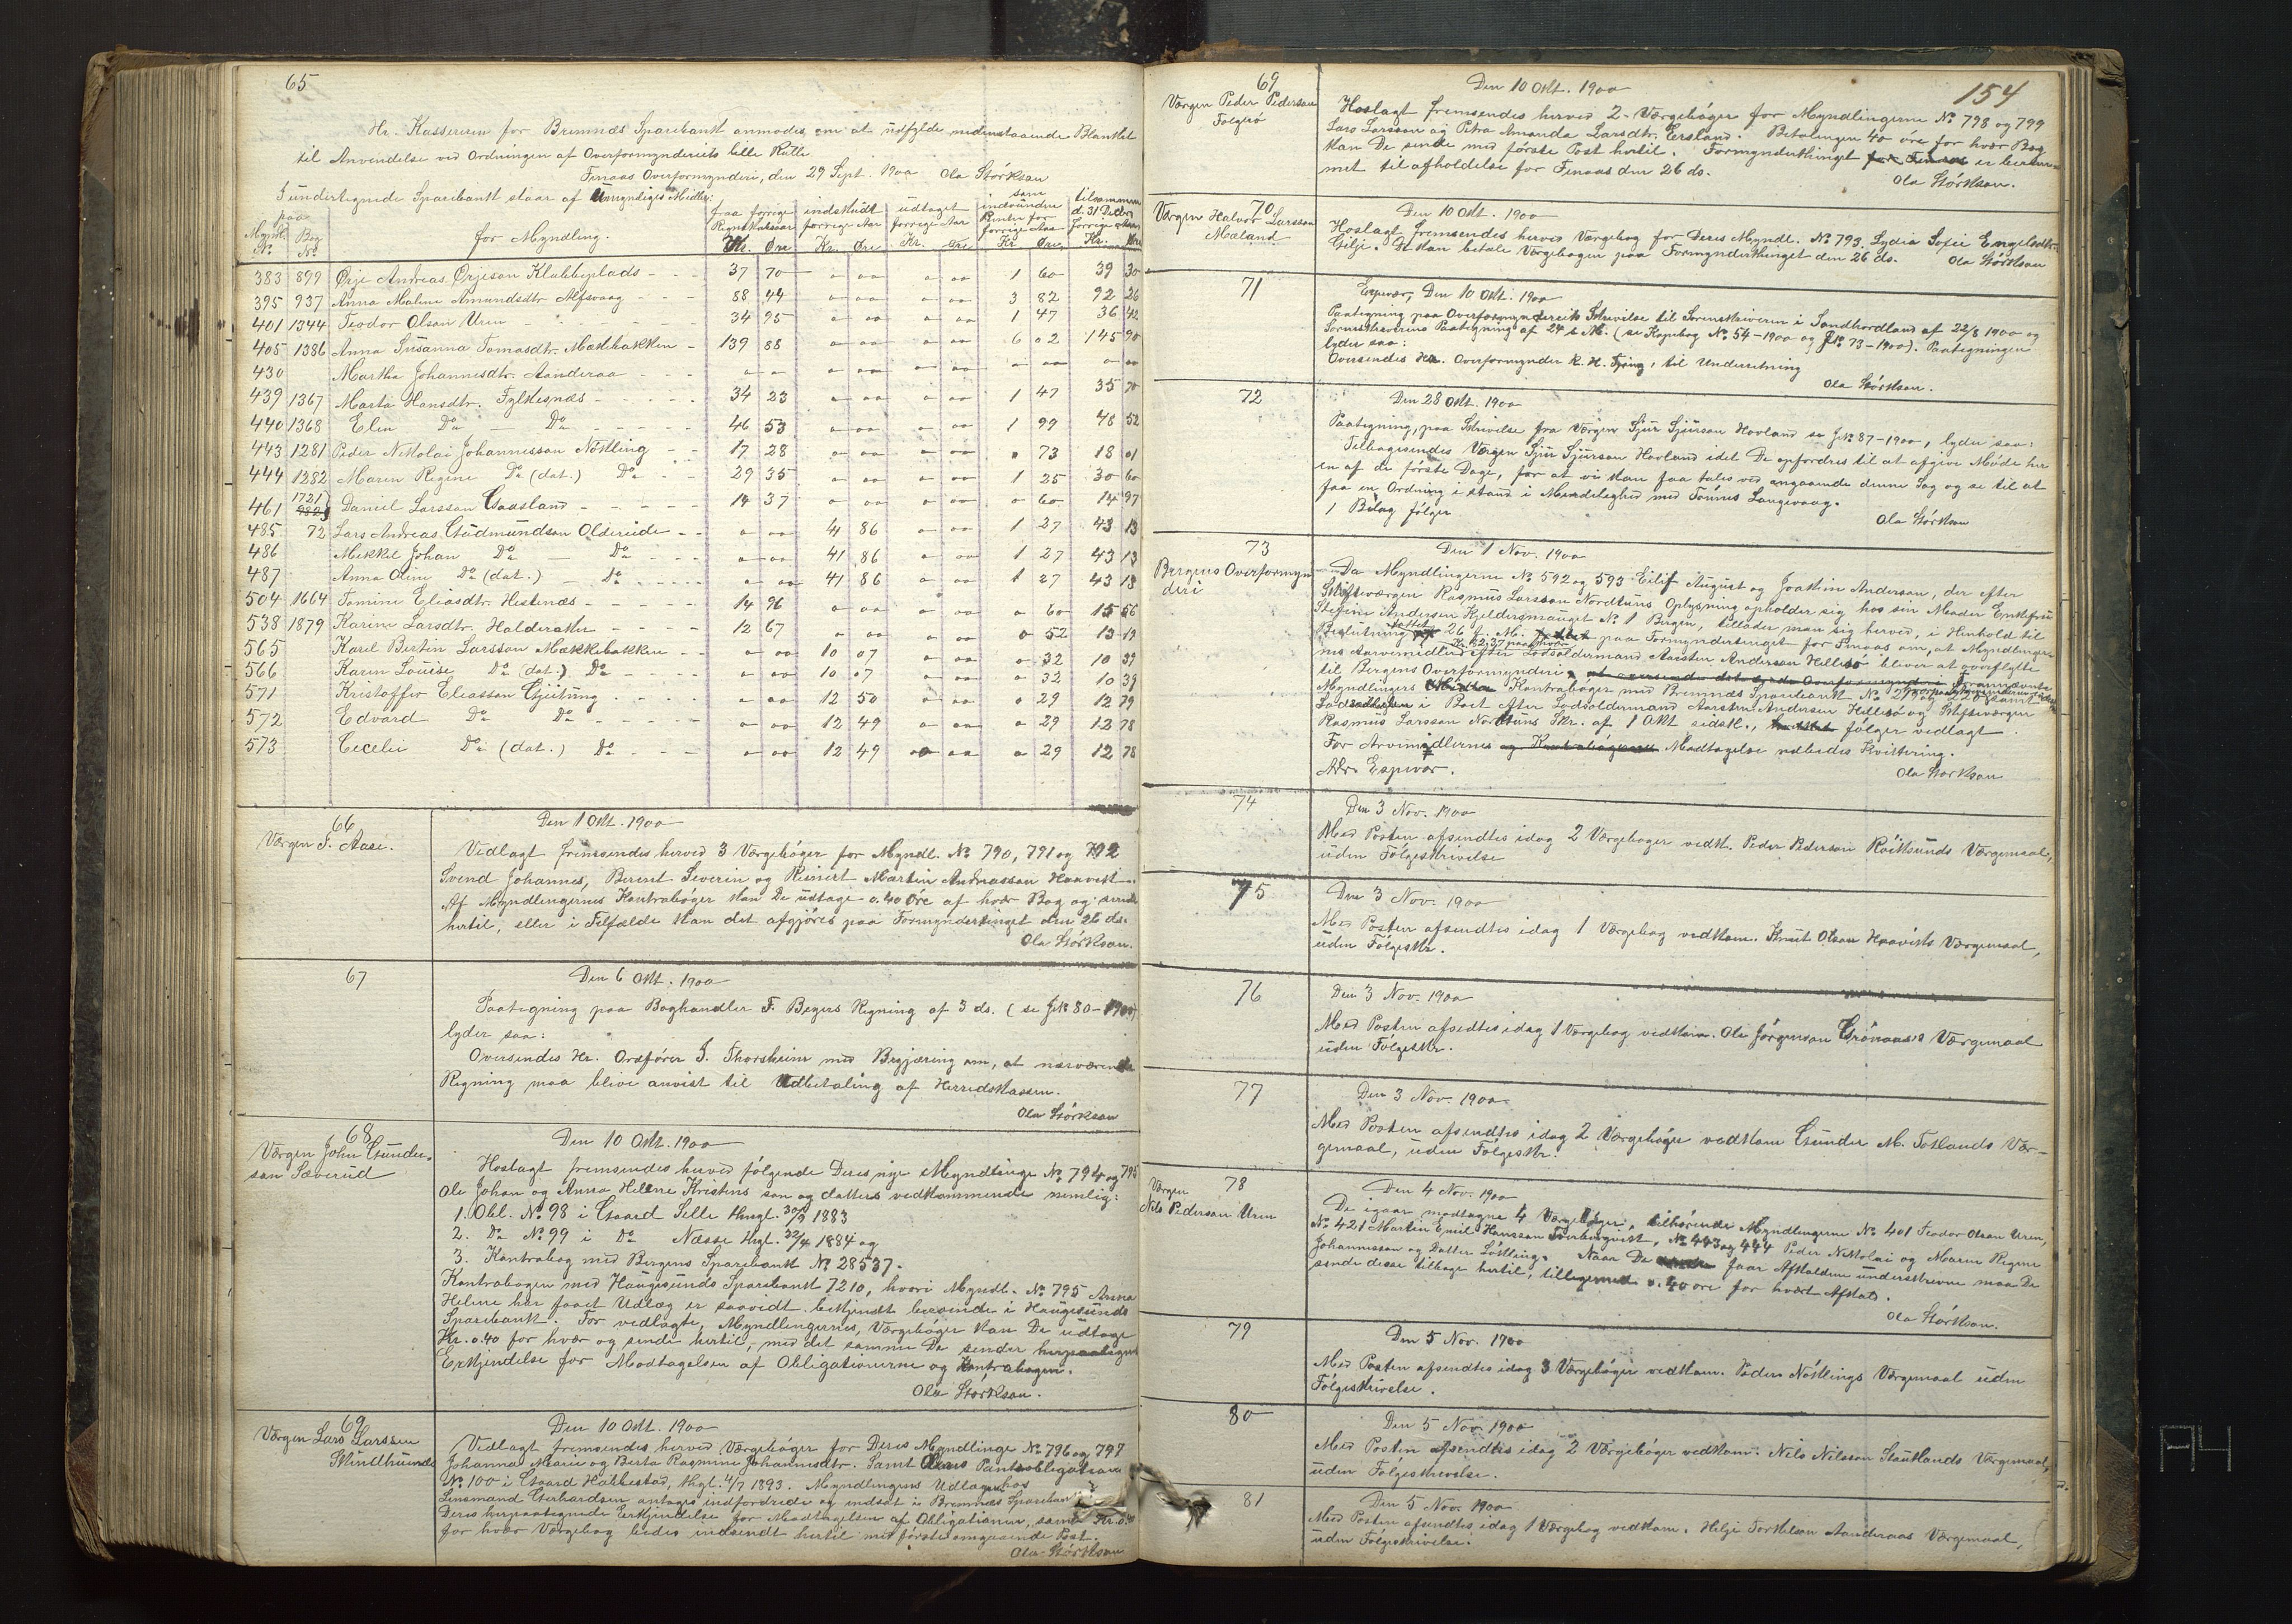 65
Hr. Kassereren for Bremnæs Sparebank anmodes om at udfylde nedenstaaende Blanket
til Anvendelse ved Ordningen af Overformynderiets lille Rulle
Finaas Overformynderi, den 29 Sept. 1900 Ola Størkson
I undertegnede Sparebank staar af Umyndiges Midler:
Myndl. No. paa Bog No for Myndling. fra forrige Regnskabsaar Kr. Øre indskudt forrige Aar Kr. Øre udtaget forrige Aar Kr. Øre som indvundne Renter for forrige Aar Kr. Øre tilsammen d. 31 Decbr forrige Aar Kr. Øre
383 899 Ørje Andreas Ørjeson Klubbeplads - - 37 70 - oo - oo 1 60 39 30
395 937 Anna Maline Amundsdtr Alfsvaag - - - 88 44 - oo - oo 3 82 92 26
401 1344 Teodor Olson Uren - - - 34 95 - oo - oo 1 47 36 42
405 1386 Anna Susanna Tomasdtr. Mækkebakken - 139 88 - oo - oo 6 02 145 90
430 Martha Johannesdtr. Aanderaa - - - - - - oo - oo - oo o oo
439 1367 Marta Hansdtr. Fylkesnæs - - - - 34 23 - oo - oo 1 47 35 70
440 1368 Elen Do - Do - - - - 46 53 - oo - oo 1 99 48 52
443 1281 Peder Nikolai Johannesson Nøtling - - 17 28 - oo - oo o 73 18 01
444 1282 Maren Regine Do (dat.) Do - - 29 35 - oo - oo 1 25 30 60
461 1721 982 Daniel Larsson Gaasland - - - - 14 37 - oo - oo o 60 14 97
485 72 Lars Andreas Gudmundson Oldereide - - o oo 41 86 - oo 1 27 43 13
486 Mikkel Johan Do - Do - - - o oo 41 86 - oo 1 27 43 13
487 Anna Oline Do (dat.) - Do - - - - o oo 41 86 o oo 1 27 43 13
504 1664 Tomine Eliasdtr. Hestenæs - - - - 14 96 - oo - oo o 60 15 56
538 1879 Karine Larsdtr. Halderaker - - - - 12 67 - oo - oo o 52 13 19
565 Karl Bertin Larsson Mækkebakken - - o oo 10 07 - oo o 32 10 39
566 Karen Louise Do (dat.) Do - - - - o oo 10 07 - oo o 32 10 39
571 Kristoffer Eliasson Gjeitung - - - - o oo 12 50 - oo o 29 12 79
572 Edvard Do Do - - - - o oo 12 49 - oo o 29 12 78
573 Cecelie Do (dat.) Do - - - o oo 12 49 o oo o 29 12 78
66
Værgen T. Aase.
Den 1 Okt. 1900
Vedlagt fremsendes herved 3 Værgebøger for Myndl. No 790, 791 og 792
Svend Johannes, Berent Severin og Reinert Martin Andreasson Haavik.
Af Myndlingernes Kontrabøger kan De udtage o.40 Øre af hver Bog og sende
hertil, eller i Tilfælde kan det afgjøres paa Formynderthinget den 26 ds.
Ola Størkson.
67
Den 6 Okt. 1900
Paategning paa Boghandler F. Beyers Regning af 3 ds. (se J.No 80-1900)
lyder saa:
Oversendes Hr. Ordfører J. Thorsheim med Begjæring om, at nærværende
Regning maa blive anvist til Udbetaling af Herredskassen.
Ola Størkson
68
Værgen John Gunder-
son Sæverud
Den 10 Okt. 1900
Hoslagt fremsendes herved følgende Deres nye Myndlinge No 794 og 795
Ole Johan og Anna Helene Kristens søn og datters vedkommende nemlig:
1. Obl. No 98 i Gaard Selle thngl. 30/9 1883
2. Do No 99 i Do Næsse thgl. 1884 og
3. Kontrabog med Bergens Sparebank No 28537.
Kontrabogen med Haugesunds Sparebank 7210, hvori Myndl. No 795 Anna
Helene har faaet Udlæg er saavidt bekjendt beroende i Haugesunds
Sparebank. For vedlagte, Myndlingernes, Værgebøger kan De udtage
Kr. o.40 for hver og sende hertil, med det samme De sender herpaategnet
Erkjendelse for Modtagelsen af Obligationerne og Kontrabogen.
Ola Størkson.
69
Værgen Lars Larssen
Skimlhunde
Den 10 Okt. 1900
Vedlagt fremsendes herved Værgebøger for Deres Myndlinge No 796 og 797
Johanna Marie og Berta Rasmine Johannesdtr. Samt Deres Panteobligation
No 100 i Gaard Heilkestad, thgl. 4/7 1893. Myndlingens Udlæg hos
Lensmand Gerhardsen antages indfordrede og indsat i Bremnæs Spareban
Deres herpaategnede Erkjendelse for Modtagelsen af Obligationen, samt Kr. o.40
for hver Værgebog bedes indsendt hertil med første omgaaende Post.
Ola Størkson
154
69
Værgen Peder Pederson
Folgerø
Den 10 Okt. 1900
Hoslagt fremsendes herved 2 Værgebøger for Myndlingerne No 798 og 799
Lars Larsson og Petra Amanda Larsdtr. Eersland. Betalingen 40 øre for hver Bog
kan De sende med første Post hertil. Formynderthinget for Finaas er beram-
met til afholdelse for Finaas den 26 ds.
Ola Størkson.
70
Værgen Halvor Larsson
Mæland
Den 10 Okt. 1900
Hoslagt fremsendes herved Værgebog for Deres Myndl. No 793. Lydia Sofie Engelsdtr.
Gilje. De kan betale Værgebogen paa Formynderthinget den 26 ds.
Ola Størkson
71
Espevær, Den 10 Okt. 1900
Paategning paa Overformynderiets Skrivelse til Sorenskriveren i Søndhordland af 22/8 1900 og
Sorenskriverens Paategning af 24 s. M. (se Kopibog No 54-1900 og J.No 73-1900). Paategningen
lyder saa:
Oversendes Hr. Overformynder K. H. Tjong, til Underretning
Ola Størkson.
72
Den 28 Okt. 1900
Paategning, paa Skrivelse fra Værgen Sjur Sjurson Hovland se J.No 87-1900, lyder saa:
Tilbagesendes Værgen Sjur Sjurson Hovland idet De opfordres til at afgive Møde her
en af de første Dage, for at vi kan faa tales ved angaaende denne Sag og se til at
faa en Ordning i stand i Mindelighed med Tønnes Langevaag.
1 Bilag følger
Ola Størkson
73
Bergens Overformyn
deri
Den 1 Nov. 1900
Da Myndlingerne No 592 og 593 Eilif August og Joakim Andersen, der efter
Skifteværgen Rasmus Larsson Nordtuns Oplysning opholder sig hos sin Moder Enkefru
Stefine Andersen Kjeldersmauget No 1 Bergen, tillader man sig herved, i Henhold til
Beslutning fattet 26 f. M. paa Formynderthinget for Finaas om, at Myndlinger-
nes Arvemidler efter Lodsoldermand Aarsten Andersen Hillesø bliver at overflytte
til Bergens Overformynderi,
Myndlingers Kontrabøger med Bremnæs Sparebank No
i Boet efter Lodsoldermand Aarsten Andersen Hillesø og Skifteværgen
Rasmus Larsson Nordtuns Skr. af 1 Okt sidstl., følger vedlagt.
For Arvemidlernes Modtagelse udbedes Kvittering.
Adr. Espevær.
Ola Størkson
74
Den 3 Nov. 1900
Med Posten afsendtes idag 2 Værgebøger vedk. Peder Pederson Røiksunds Værgemaal,
uden Følgeskrivelse
75
Den 3 Nov. 1900
Med Posten afsendtes idag 1 Værgebog vedkom. Knut Olson Haaviks Værgemaal,
uden Følgeskr.
76
Den 3 Nov. 1900
Med Posten afsedtes idag 1 Værgebog vedkom. Ole Jørgenson Grønaases Værgemaal
uden Følgeskr.
77
Den 3 Nov. 1900
Med Posten afsendtes idag 2 Værgebøger vedkom Gunder M. Totlands Vær-
gemaal, uden Følgeskr.
78
Værgen
Nils Pederson Uren
Den 4 Nov. 1900
De igaar modtagne 4 Værgebøger, tilhørende Myndlingerne No 401 Teodor Olson Uren,
No 421 Martin Emil Hansson, No 443 og 444 Peder Nikolai og Maren Regine
Johannesson og Datter Løkling. Naar De faar Afkaldene underskrevne maa De
sende disse tilbage hertil, tilligemed o.40 øre for hvert Afkald.
Ola Størkson.
79
Den 5 Nov. 1900
Med Posten afsendtes idag 3 Værgebøger vedkom. Peders Nøklings Værgemaal uden
Følgeskrivelse.
80
Den 5 Nov. 1900
Med Posten afsendtes idag 2 Værgebøger vedkom. Nils Nilsson Stautlands Værgemaal,
uden Følgeskrivelse.
81
Den 5 Nov. 1900
Med Posten afsendtes idag 1 Værgebog vedkom. Helje Torkelson Aanderaas Værgemaal,
uden Følgeskrivelse.